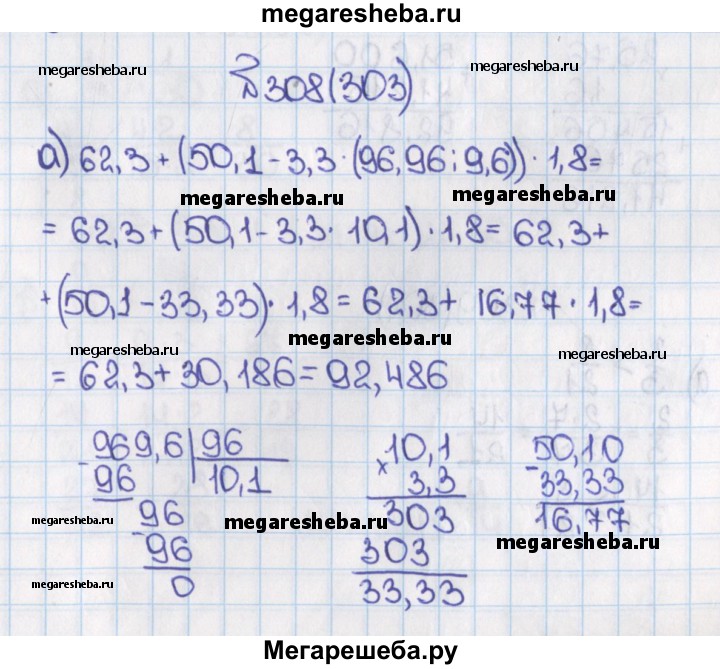 megaresheba.ru
megaresheba.ru megaresheba.ru
№308(303)
а) 62,3 + (50,1 - 3,3 · (96,96 : 9,6)) · 1,8 =
megaresheba.ru megaresheba.ru
= 62,3 + (50,1 - 3,3 · 10,1) · 1,8 = 62,3 +
+ (50,1 - 33,33) · 1,8 = 62,3 + 16,77 · 1,8 =
megaresheba.ru
megaresheba.ru megaresheba.ru
= 62,3 + 30,186 = 92,486
969,6 | 96
- 96 10,1
96
- 96
0
× 10,1
3,3
303
303
33,33
50,10
- 33,33
16,77
megaresheba.ru megaresheba.ru megaresheba.ru
megaresheba.ru megaresheba.ru
Мегарешеба.ру